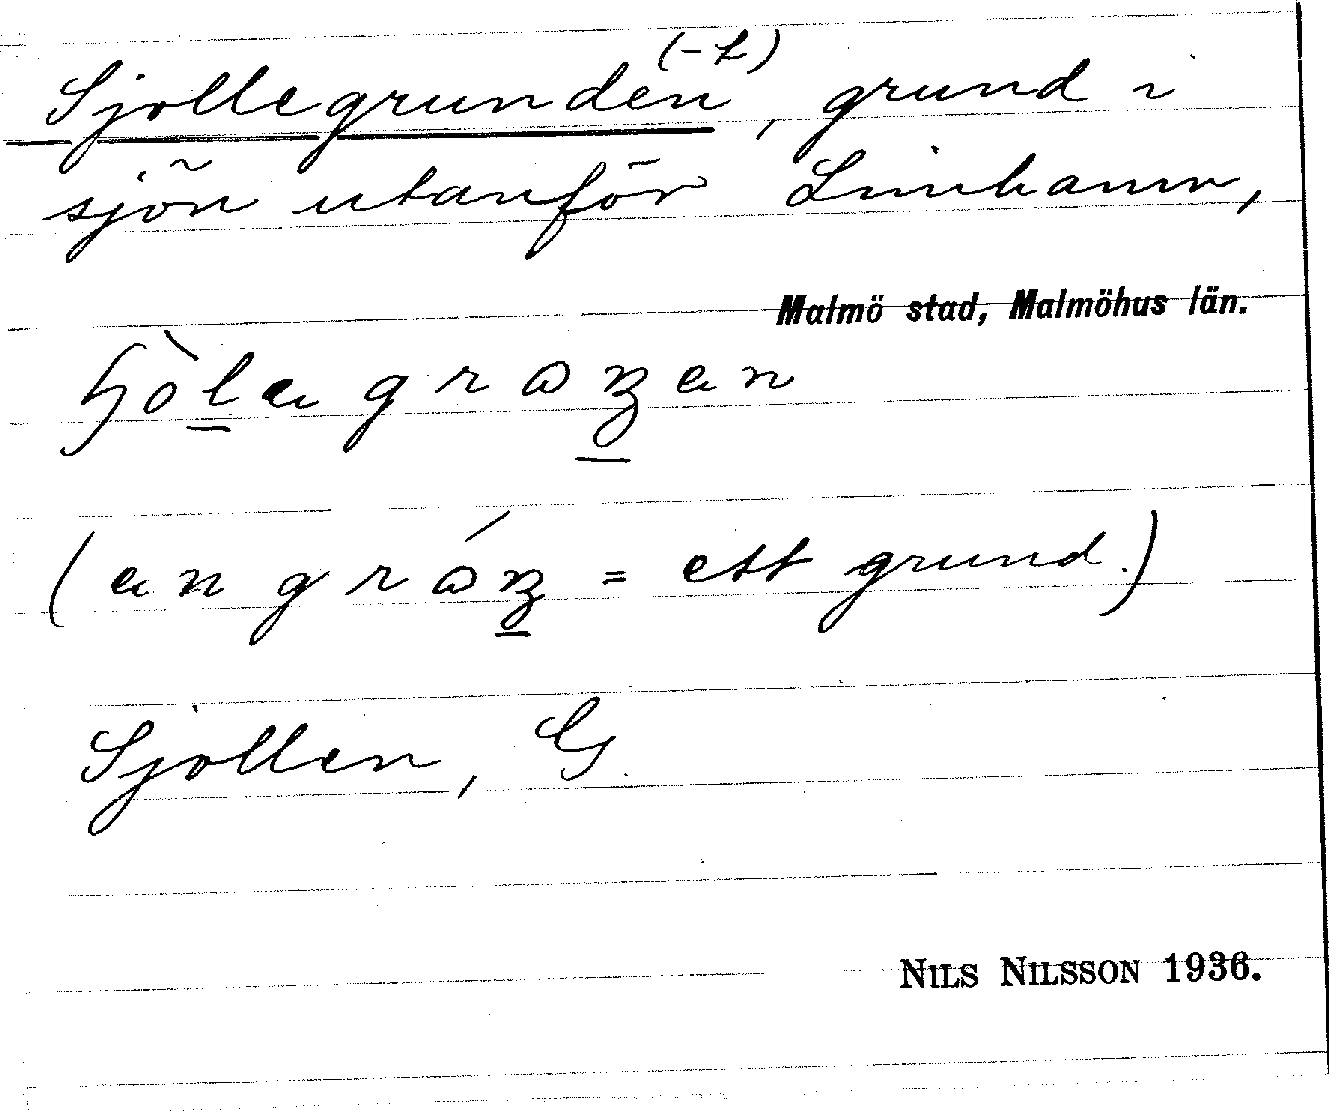 Sjollegrunden (-t), grund i
sjön utanför Limhamn,
Malmö stad, Malmöhus län.
(en = ett grund.)
Sjollen, G
NILS NILSSON 1936.